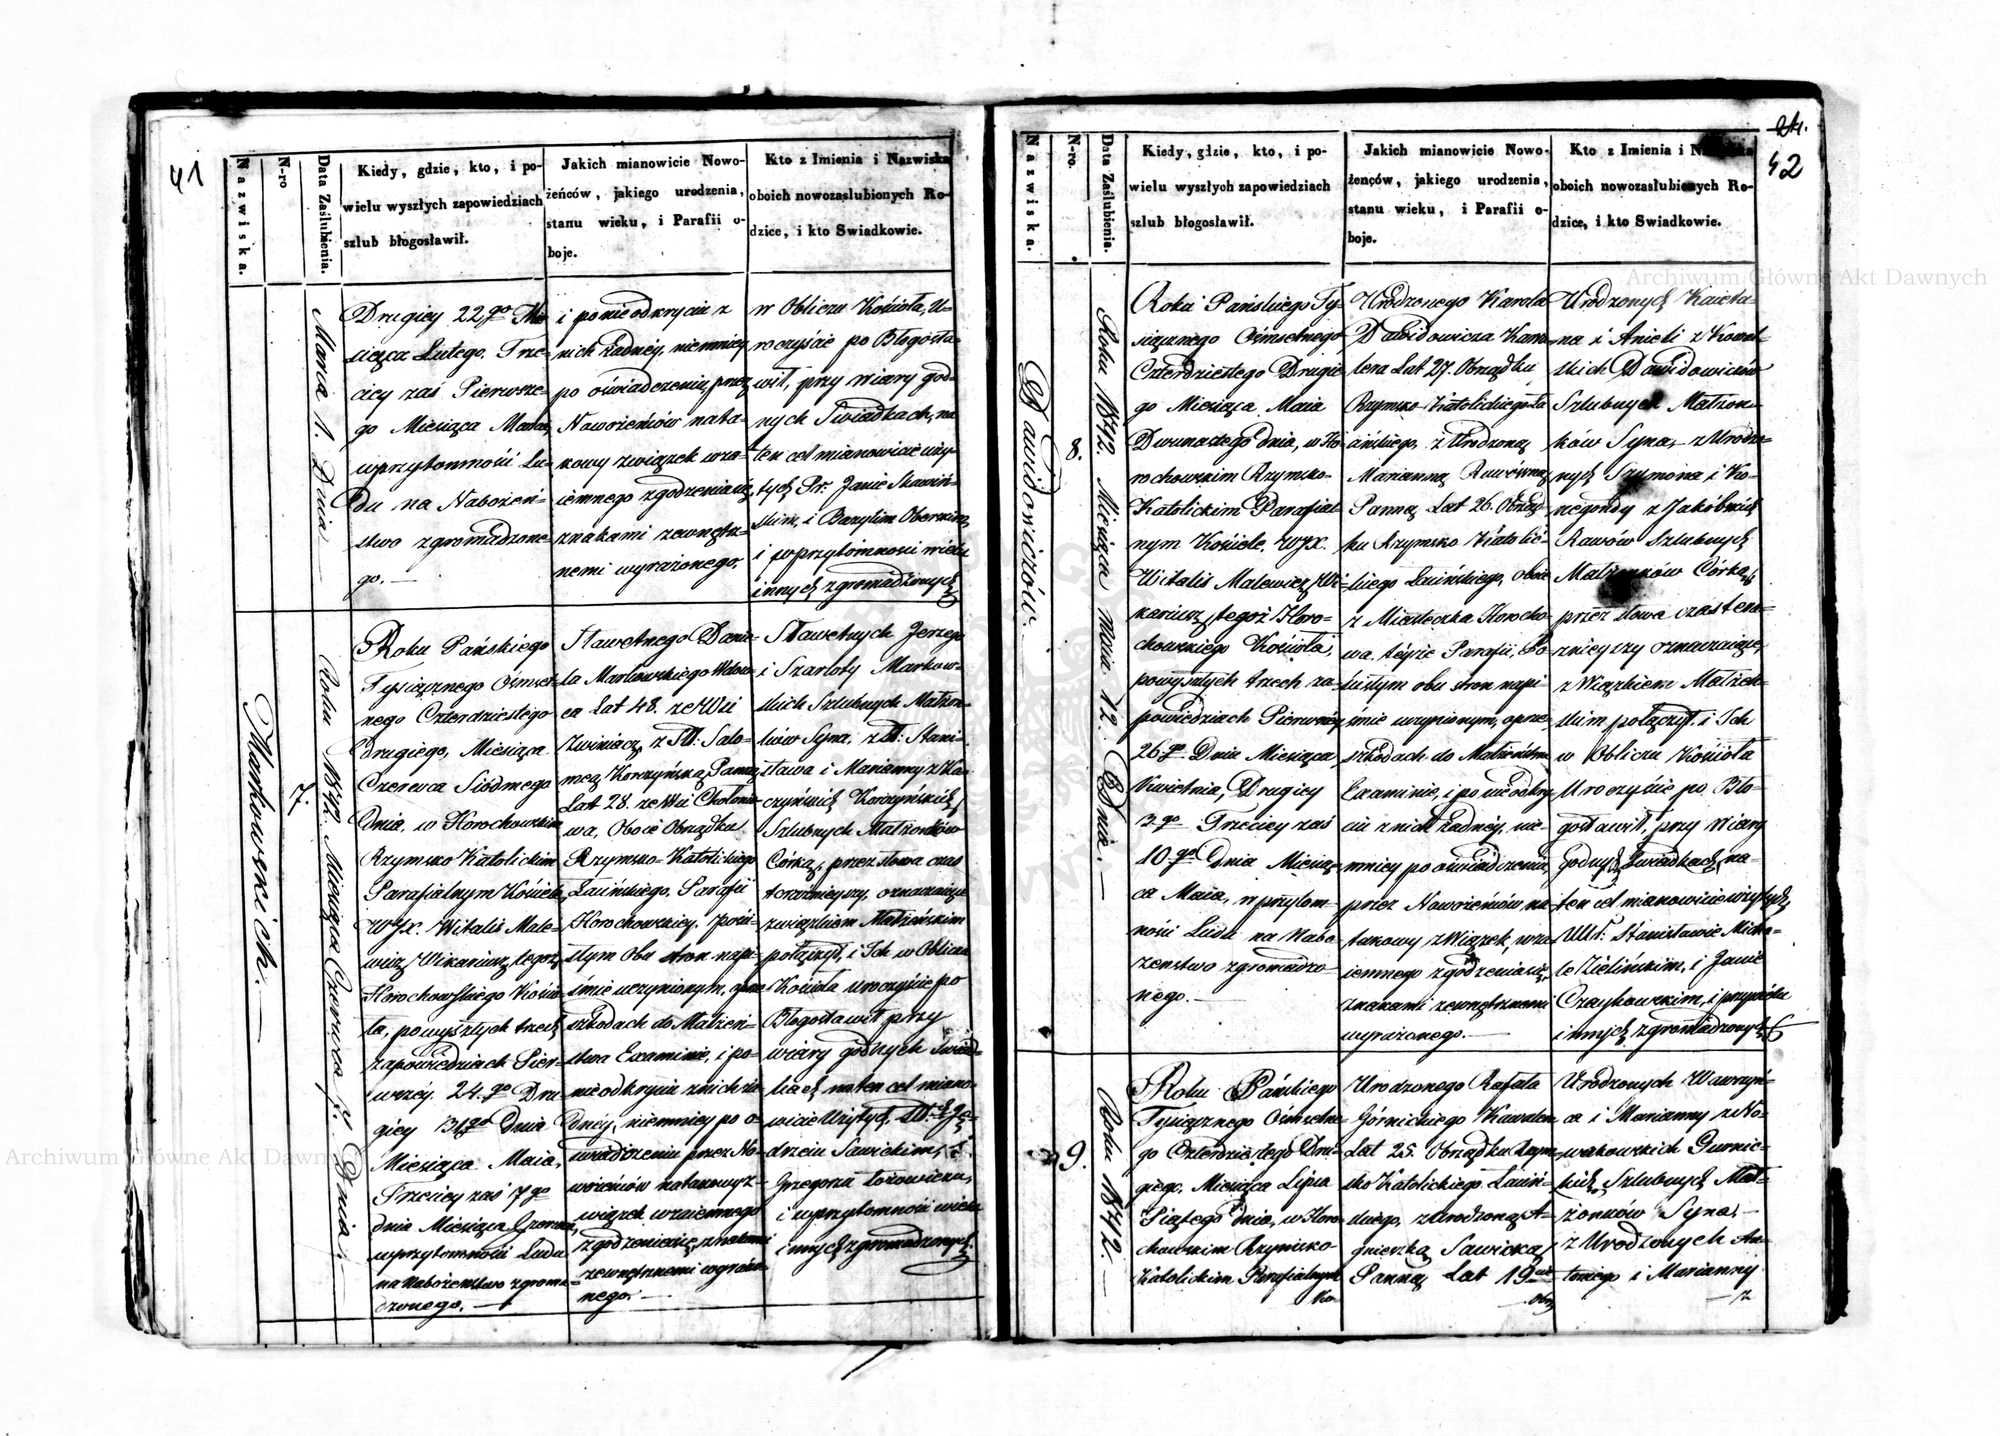 41
Nazwiska.
N-ro
Data Zaślubienia.
Kiedy, gdzie, kto, i po-
wielu wyszłych zapowiedziach
szlub błogosławił.
Jakich mianowicie Nowo-
żeńców, jakiego urodzenia,
stanu wieku, i Parafii o-
boje.
Kto z Imienia i Nazwiska
oboich nowozaslubionych Ro-
dzice, i kto Swiadkowie.
Marca 1. Dnia
Drugiey 22go Mie-
siąca Lutego, Trze-
ciey zaś Pierwsze-
go Miesiąca Marca,
wprzytomności Lu-
du na Nabożeń-
stwo zgromadzone-
go. —
i ponieodkryciu z
nich żadney, niemniey
po oświadczeniu przez
Nowożeńców nata-
kowy związek wza-
iemnego zgodzeniasię
znakami zewnętrz-
nemi wyrażonego.
w Obliczu Kościoła, U-
roczyście po Błogosła-
wił, przy wiary god-
nych Swiadkach, na
ten cel mianowicie uży-
tych Pr. Janie
i Bazylim
i wprzytomności wielu
innych zgromadzonych
Markowskich. —
7.
Roku 1842. Miesiąca Czerwca 7. Dnia.
Roku Pańskiego
Tysiącznego Ośmset-
nego Czterdziestego
drugiego, Miesiąca
Czerwca Siódmego
Dnia, w Horochowskim
Rzymsko Katolickim
Parafialnym Kościele,
WJX. Witalis Male-
wicz Wikariusz tegoż
Horochowskiego Kościo-
ła, powyszłych trzech
zapowiedziach Pier-
wszéy 24.go Dru-
giéy 31go Dnia
Miesiąca Maia,
Trzeciey zaś 7go
dnia Miesiąca Czerwca,
wprzytomności Ludu
na Nabożeństwo zgroma-
dzonego. —
Sławetnego Danie-
la Markowskiego Wdow-
ca Lat 48. ze Wsi
Zwiniacz, z Sł: Salo-
meą Korczyńską Panną
Lat 28. ze Wsi Chołonie-
wa, Oboie Obrządku
Rzymsko-Katolickiego
Łaińskiego, Parafii
Horochowskiey. po ści-
słym Obu stron napi-
śmie uczynionym, oprze-
szkodach do Małżeń-
stwa Examinie, i po-
nieodkryciu znich ża-
dnéy, niemniey po o-
świadczeniu przez No-
wożeńców natakowy z-
wiązek wzaiemnego
zgodzeniasię, znakami
zewnętrznemi wyrażo-
nego. —
Sławetnych Jerzego
i Szarloty Markow-
skich Szlubnych Małżon-
ków Syna, z Sł: Stani-
sława i Marianny z
Korczyńskich
Szlubnych Małżonków
Córką, przez słowa czas
terazniejszy, oznaczaiące
związkiem Małżeńskim
połączył, i Ich w Obliczu
Kościoła uroczyście po
Błogosławił przy
wiary godnych Swiad-
kach naten cel miano-
wicie Użytych,
Sawickim,
Grzegorzu
i wprzytomności wielu
innych zgromadzonych.
24.
42
Nazwiska.
N-ro.
Data Zaślubienia.
Kiedy, gdzie, kto, i po-
wielu wyszłych zapowiedziach
szlub błogosławił.
Jakich mianowicie Nowo-
żeńców, jakiego urodzenia,
stanu wieku, i Parafii o-
boje.
Kto z Imienia i
oboich nowozaslubionych Ro-
dzice, i kto Swiadkowie.
Dawidowiczów. —
8.
Roku 1842. Miesiąca Maia 12. Dnia. —
Roku Pańskiego Ty-
siącznego Ośmsetnego
Czterdziestego Drugie-
go Miesiąca Maia
Dwunastego dnia, w Ho-
rochowskim Rzymsko-
Katolickim Parafial-
nym Kościele, WJX.
Witalis Malewicz Wi-
kariusz tegoż Horo-
chowskiego Kościoła,
powyszłych trzech za-
powiedziach Pierwszéy
26go Dnia Miesiąca
Kwietnia, Drugiey
3go Trzeciey zaś
10go Dnia Miesią-
ca Maia, wprzytom-
ności Ludu na Nabo-
żenstwo zgromadzo-
nego. —
Urodzonego Karola
Dawidowicza Kawa-
lera Lat 27. Obrządku
Rzymsko Katolickiego Ła-
ińskiego, z Urodzoną
Marianną Rawówną
Panną Lat 26. Obrząd-
ku Rzymsko Katolic-
kiego Łaińskiego, oboie
z Miasteczka Horocho-
wa, téyże Parafii, Po
ścisłym obu stron napi-
śmie uczynionym, oprze-
szkodach do Małżeństwa
Examinie, i po nieodkry-
ciu znich żadnéy, nie-
mniey po oświadczeniu
przez Nowożeńców na-
takowy związek wza-
iemnego zgodzeniasię,
znakami zewnętrznemi
wyrażonego. —
Urodzonych Kaieta-
na i Anieli z Kowal-
skich Dawidowiczów
Szlubnych Małżon-
ków Syna, z Urodzo-
nych Szymona i Ku-
negundy z
Rawów Szlubnych
Małżonków Córką,
przez słowa czas tera-
znieyszy oznaczaiące,
związkiem Małżeń-
skim połączył, i Ich
w Obliczu Kościoła
Uroczyście po Bło-
gosławił, przy Wiary
godnych Swiadkach, na-
ten cel mianowicie użytych,
Stanisławie Micha-
le Zielińskim, i Janie
Czaykowskim, i przywielu
innych zgromadzonych
9.
Roku 1842. —
Roku Pańskiego
Tysiącznego Ośmsetne-
go Czterdziestego Dru-
giego, Miesiąca Lipca
Piątego dnia, w Horo-
chowskim Rzymsko-
Katolickim Parafialnym
Ko-
Urodzonego Rafała
Górnickiego Kawalera
Lat 25. Obrządku Rzym-
sko Katolickiego Łaiń-
skiego, z Urodzoną A-
gnieszką Sawicką
Panną Lat 19
obrz
Urodzonych Wawrzyń-
ca i Marianny z No-
wakowskich Gurnic-
kich Szlubnych Mał-
żonków Syna, —
z Urodzonych An-
toniego i Marianny
— z
Archiwum Główne Akt Dawnych
Archiwum Główne Akt Dawnych